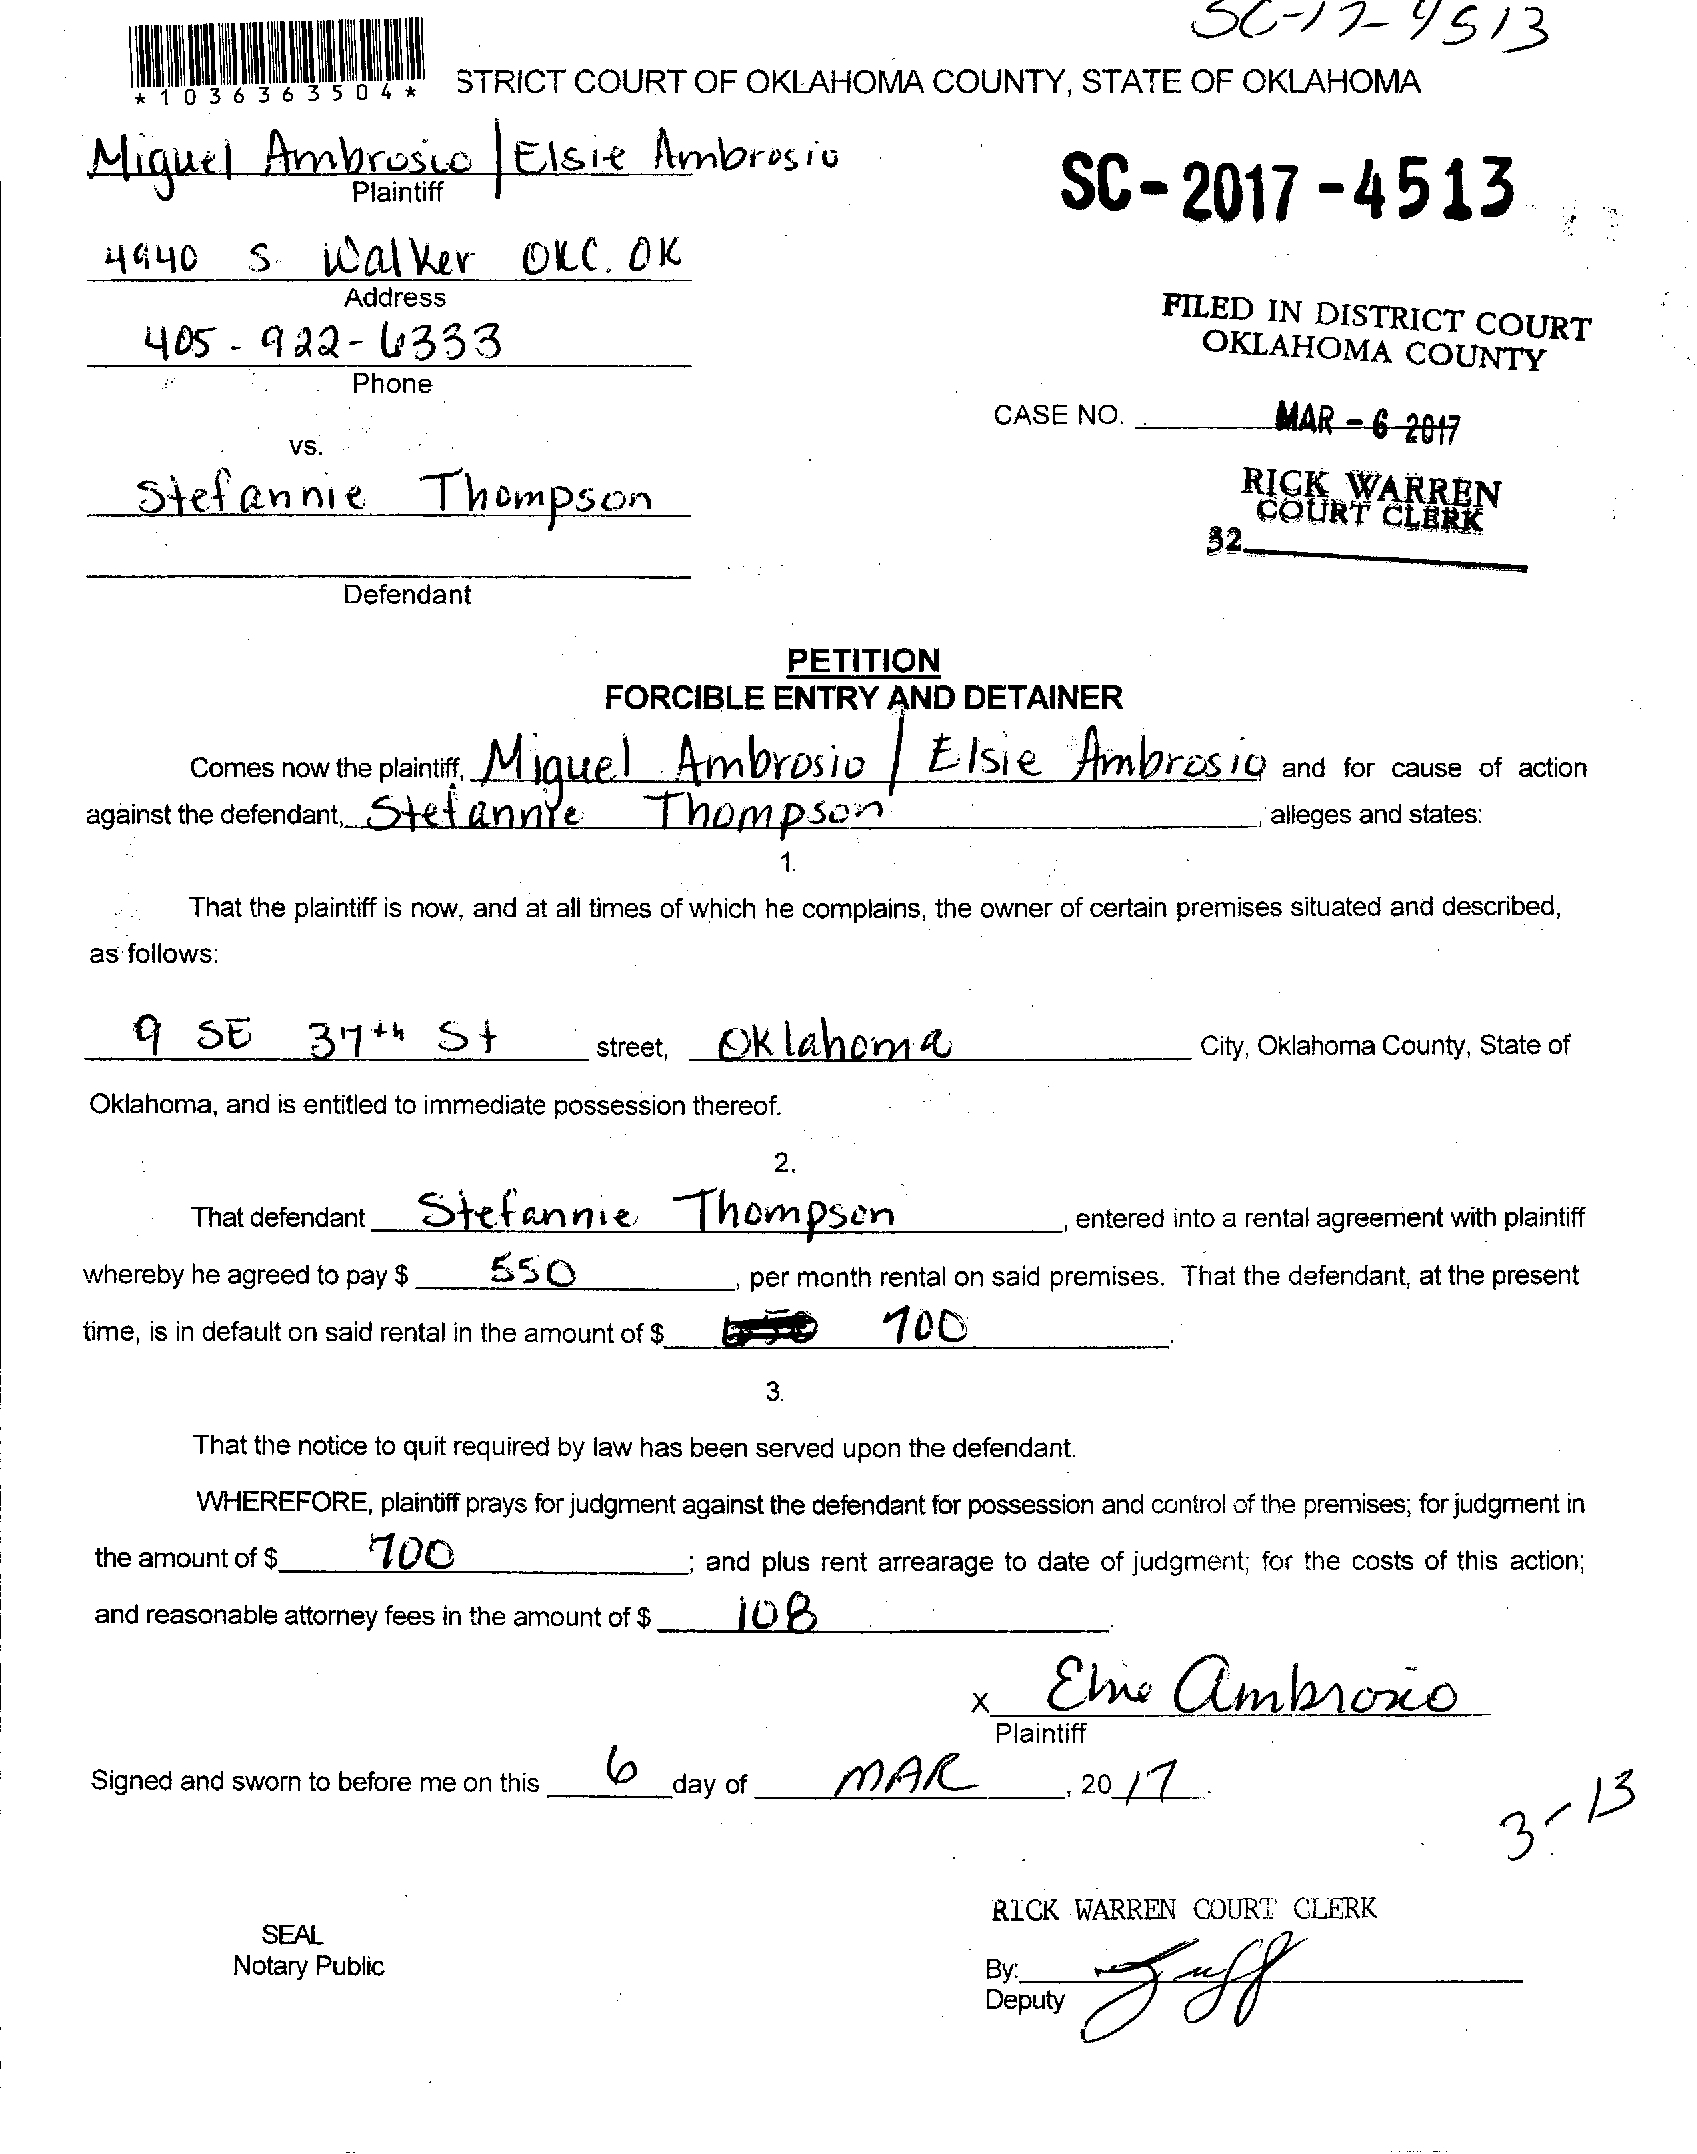 SC-17-4513
*1036363504*
STRICT COURT OF OKLAHOMA COUNTY, STATE OF OKLAHOMA
Miguel Ambrosio / Elsie Ambrosio
Plaintiff
SC-2017-4513
4940 S. Walker OKC. OK
Address
FILED IN DISTRICT COURT
OKLAHOMA COUNTY
405-922-6333
Phone
CASE NO. MAR - 6 2017
vs.
RICK WARREN
COURT CLERK
Stefannie Thompson
32
Defendant
PETITION
FORCIBLE ENTRY AND DETAINER
Comes now the plaintiff, Miguel Ambrosio / Elsie Ambrosio and for cause of action
against the defendant, Stefannie Thompson, alleges and states:
1.
That the plaintiff is now, and at all times of which he complains, the owner of certain premises situated and described,
as follows:
9 SE 37th St street, Oklahoma City, Oklahoma County, State of
Oklahoma, and is entitled to immediate possession thereof.
2.
That defendant Stefannie Thompson, entered into a rental agreement with plaintiff
whereby he agreed to pay $ 550, per month rental on said premises. That the defendant, at the present
time, is in default on said rental in the amount of $ 700.
3.
That the notice to quit required by law has been served upon the defendant.
WHEREFORE, plaintiff prays for judgment against the defendant for possession and control of the premises; for judgment in
the amount of $ 700; and plus rent arrearage to date of judgment; for the costs of this action;
and reasonable attorney fees in the amount of $ 108.
x Elsie Ambrosio
Plaintiff
Signed and sworn to before me on this 6 day of MAR, 2017.
3-13
RICK WARREN COURT CLERK
SEAL
Notary Public
By:
Deputy